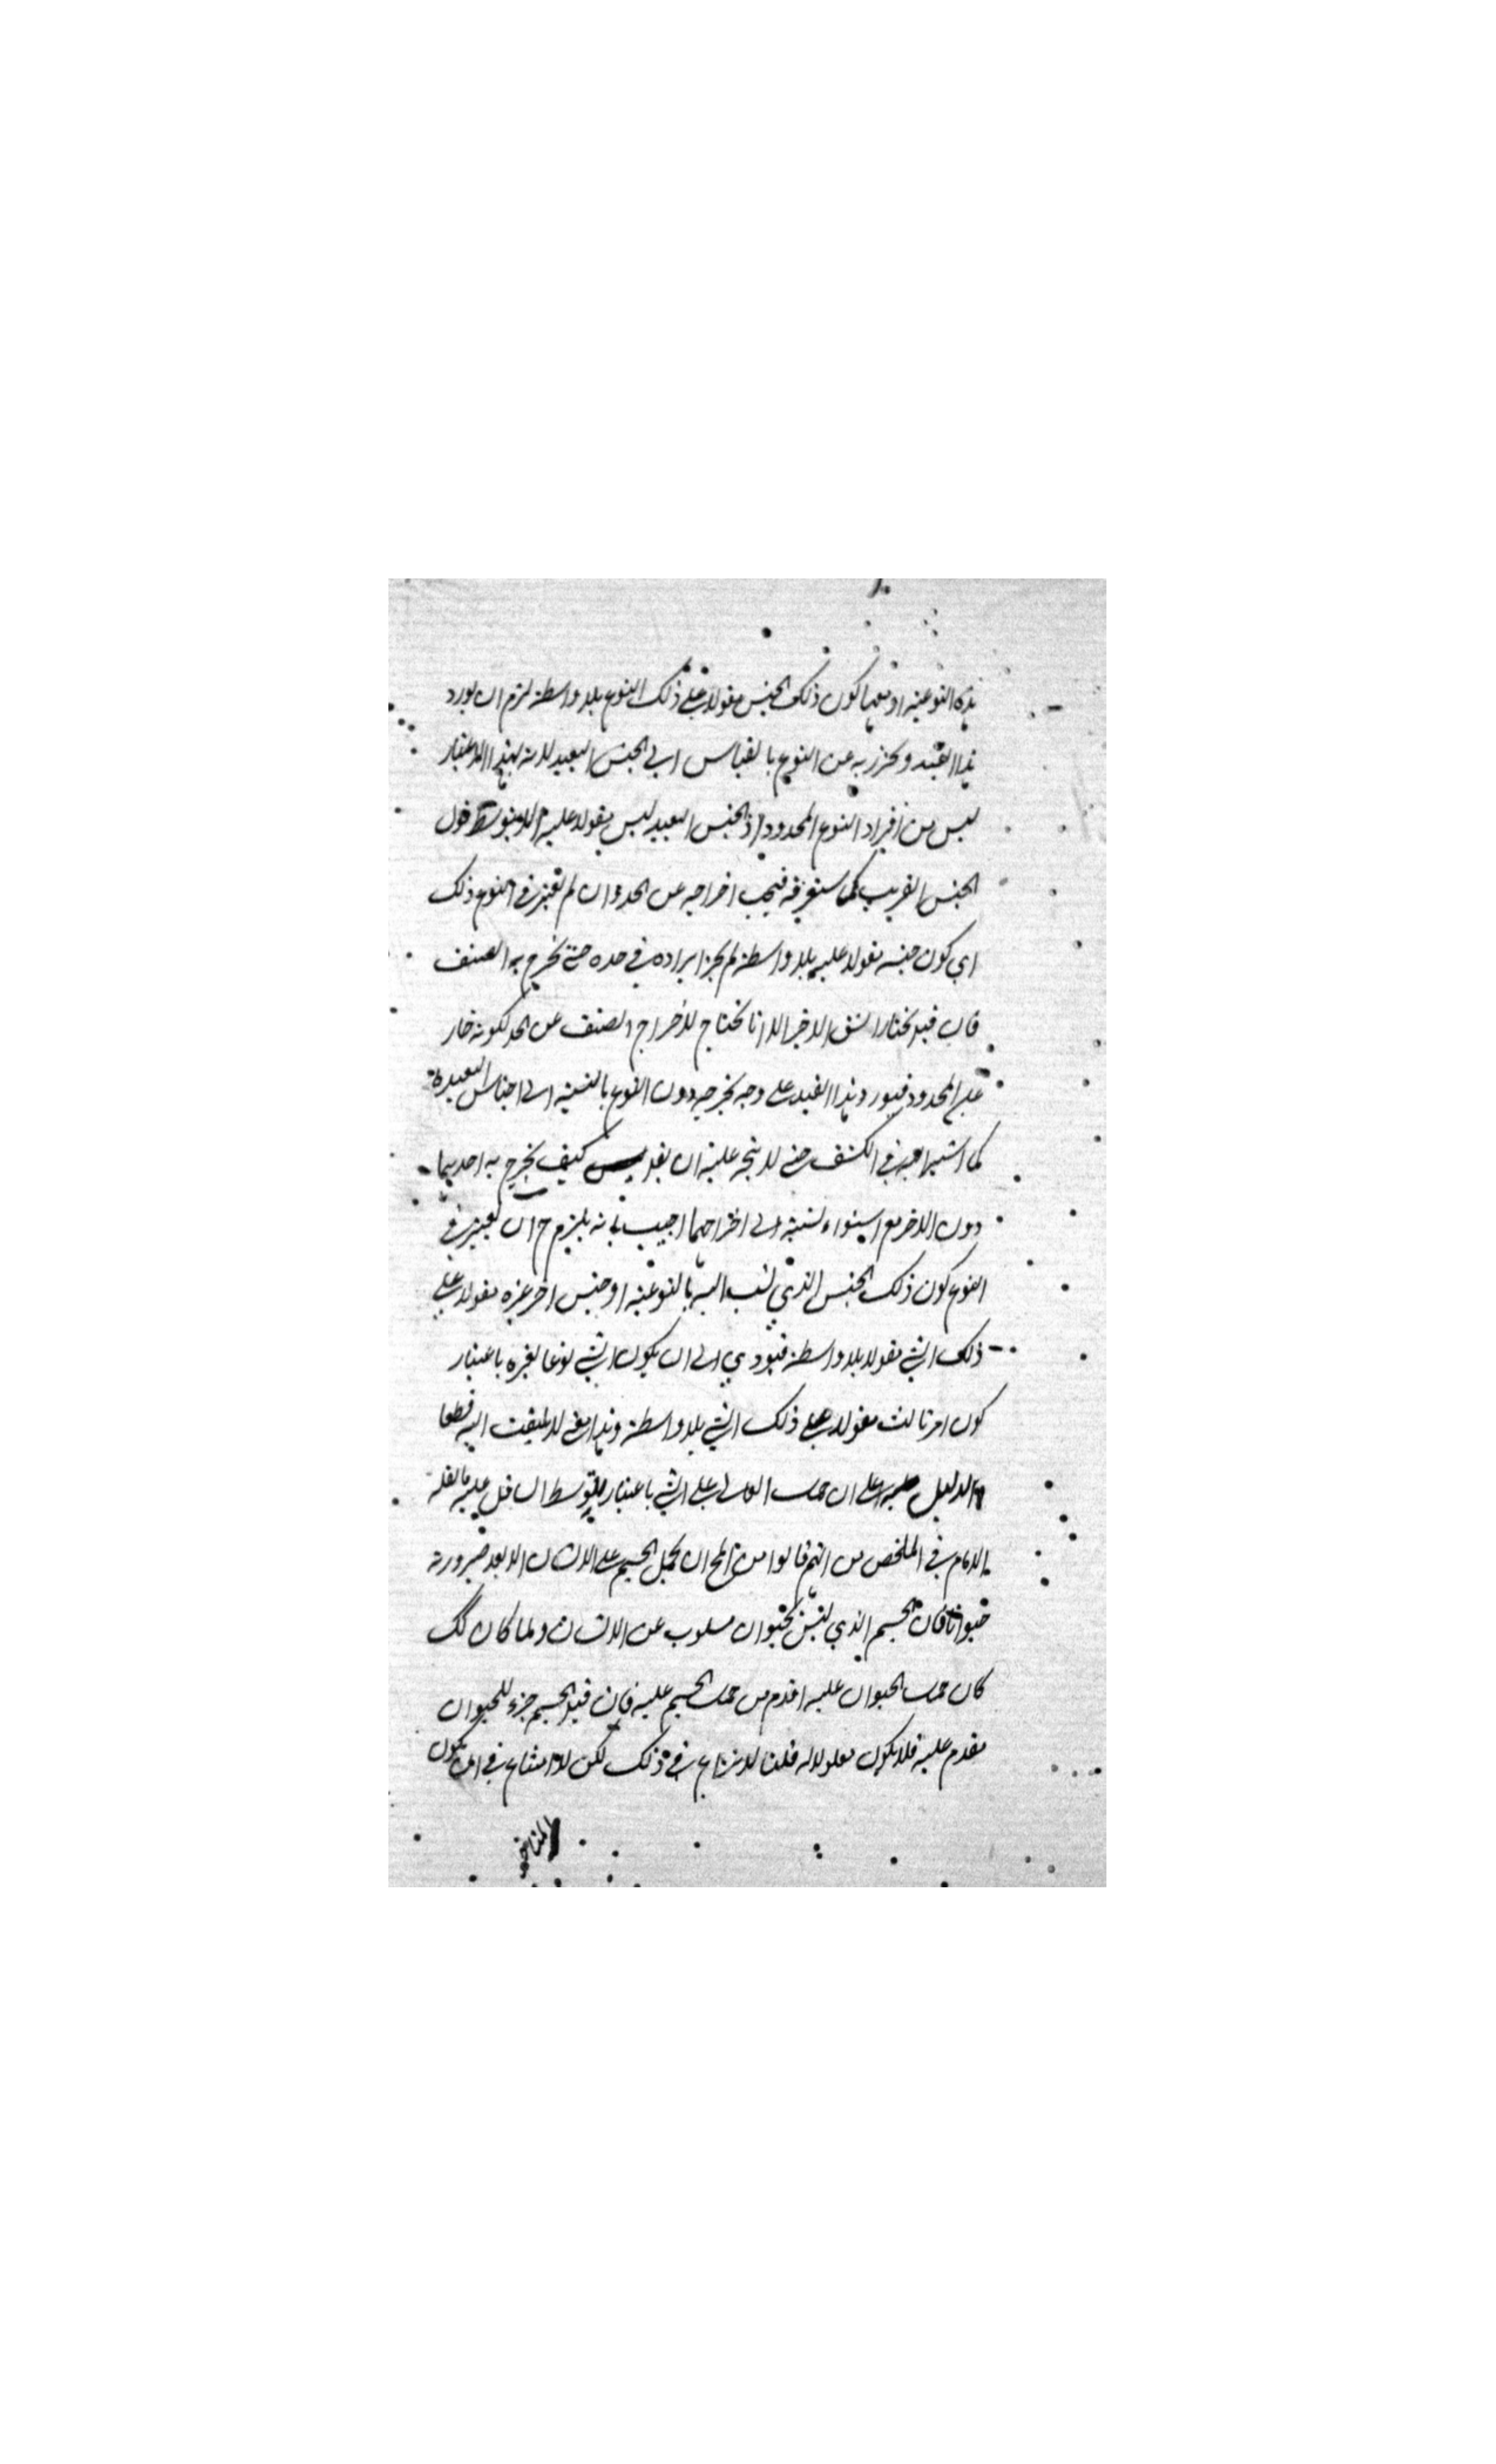 هذه النوعية او مهما كون ذلك الجنس مقولا على ذلك النوع بلا واسطة لزم ان يورد
هذا القيد ويحترز به عن النوع بالقياس الى الجنس البعيد لانه بهذا الاعتبار
ليس من افراد النوع المحدود اذ الجنس البعيد ليس مقولا عليه الا بتوسط قول
الجنس القريب كما ستعرفه فيجب اخراجه عن الحد وان لم يعتبر في النوع ذلك
اي كون جنسه مقولا عليه بلا واسطة لم يجز ايراده في حده حتى يخرج به الصنف
فان قيل نختار الشق الاخير الا انا نحتاج لاخراج الصنف عن الحد لكونه خار
عن المحدود فيورد هذا القيد على وجه يخرجه دون النوع بالنسبة الى اجناس البعيدة
كما اشير اليه في الكشف حتى لا يتجه عليه ان يقال كيف يخرج به احديهما
دون الاخر مع استواء نسبته الى اخراجهما اجيب بانه يلزم ح ان يعتبر في
النوع كون ذلك الجنس الذي نسب اليه بالنوعية او جنس اخر غيره مقولا على
ذلك الشي مقولا بلا واسطة فيودي الى ان يكون الشي نوعا لغيره باعتبار
كون امر ثالث مقولا على ذلك الشي بلا واسطة وهذا معنى لا يلتفت اليه قطعا
والدليل على ان حمل العالي على الشي باعتبار توسط السافل عليه ما نقله
الامام في الملخص من انهم قالوا من المح ان يحمل الجسم على الانسان الا بعد صيرورته
حيوانا فان الجسم الذي ليس بحيوان مسلوب عن الانسان ولما كان كك
كان حمل الحيوان عليه اقدم من حمل الجسم عليه فان قيل الجسم جزء للحيوان
مقدم عليه فلا يكون معلولا له قلنا لا نزاع في ذلك لكن لا امتناع في ان يكون
المتاخر